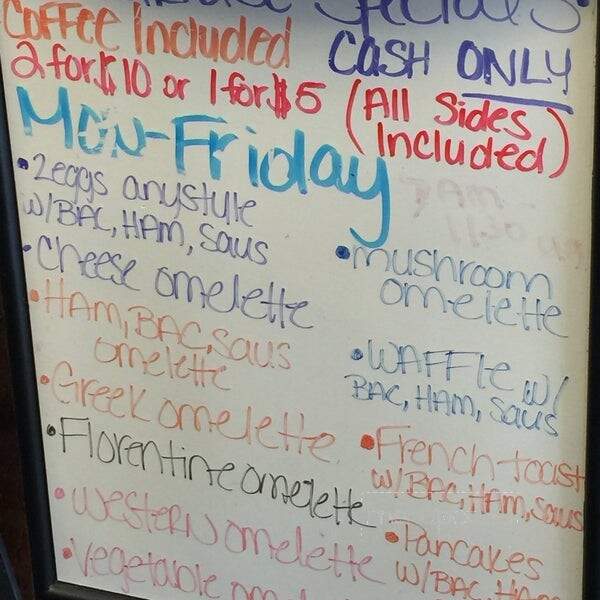 Specials
Coffee Included
CASH ONLY
2 for $10 or 1 for $5 (All Sides Included)
Mon-Friday
7AM -
11:30
•2eggs anystyle
w/BAC, HAM, Saus
•Cheese omelette
•HAM, BAC, Saus
omelette
•Greek omelette
•Florentine omelette
•Western omelette
•Vegetable
•mushroom
omelette
•WAFFle w/
BAC, HAM, Saus
•French-toast
w/BAC, HAM, Saus
•Pancakes
w/BAC, HAM